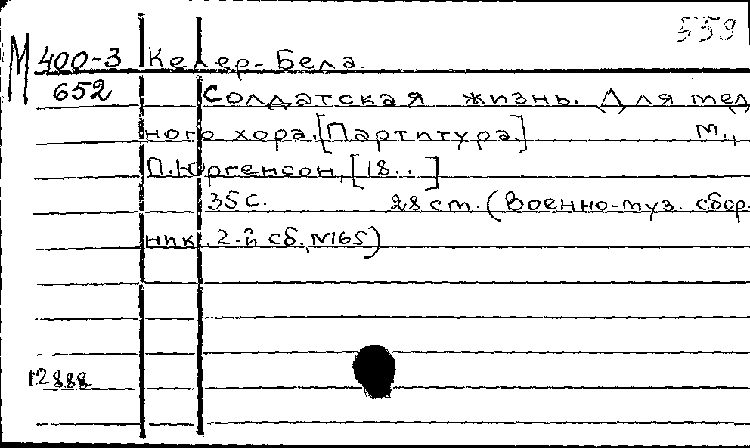 559
М 400-3 Келер-Бела
652 Солдатская жизнь. Для мед
ного хора. [Партитура.] М.,
П. Юргенсон, [18..]
35 с. 28 см. (Военно-муз. сбор-
ник. 2-й сб., №165)
12888